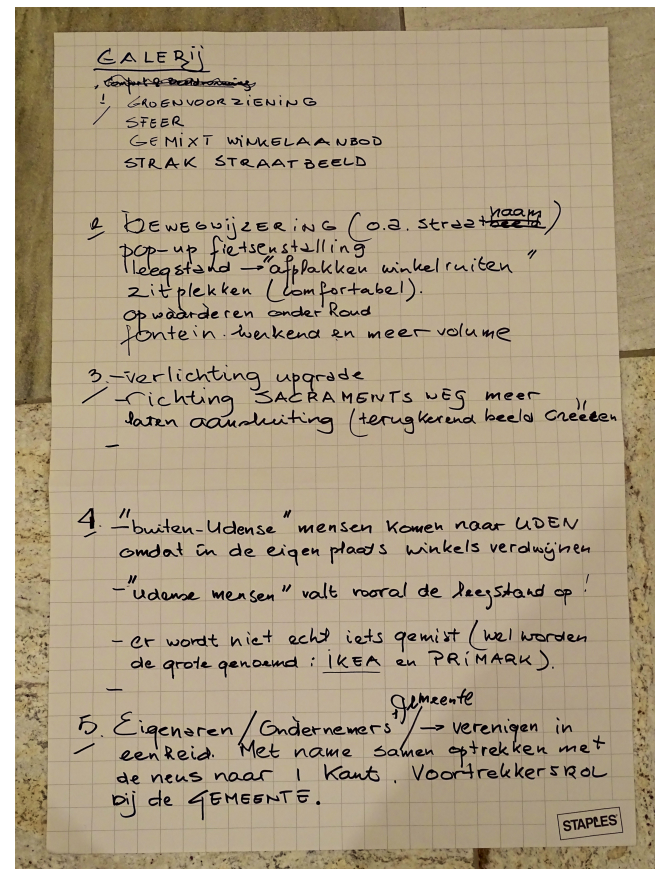 GALERIJ
1 GROENVOORZIENING
SFEER
GEMIXT WINKELAANBOD
STRAK STRAATBEELD
2 BEWEGWIJZERING (o.a. straatnaam)
pop-up fietsenstalling
leegstand → "afplakken winkelruiten"
zitplekken (comfortabel).
opwaarderen onder Rond
fontein. werkend en meer volume
3. - verlichting upgrade
- richting SACRAMENTSWEG meer
laten aansluiting (terugkerend beeld creëeen
-
4. - "buiten-Udense" mensen komen naar UDEN
omdat in de eigen plaats winkels verdwijnen
- "Udense mensen" valt vooral de leegstand op!
- er wordt niet echt iets gemist (wel worden
de grote genoemd: IKEA en PRIMARK).
-
gemeente
5. Eigenaren / Ondernemers / → verenigen in
eenheid. Met name samen optrekken met
de neus naar 1 kant. Voortrekkersrol
bij de GEMEENTE.
STAPLES